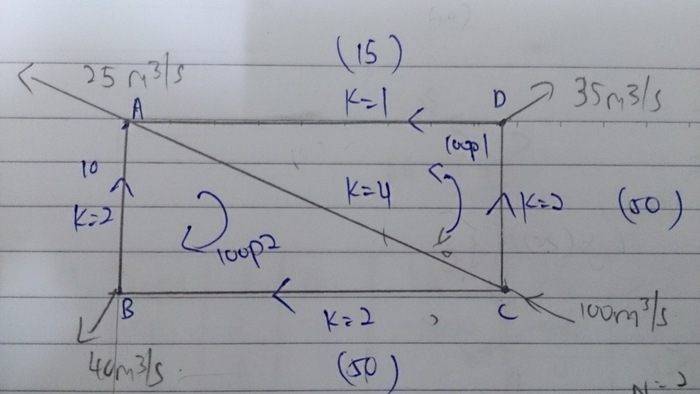 (15)
25 m³/s
K=1
35m³/s
A
D
loop1
10
K=4
K=2
K=2
(50)
loop2
B
C
K=2
100m³/s
40m³/s.
(50)
N=2